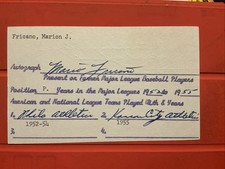 Fricano, Marion J.
Autograph Mario Fricano
Present or Former Major League Baseball Players
Position P. Years in the Major Leagues 1952 to 1955
American and National League Teams Played With & Years
1. Phila Athletics 2. Kansas City Athletics
1952-54 1955